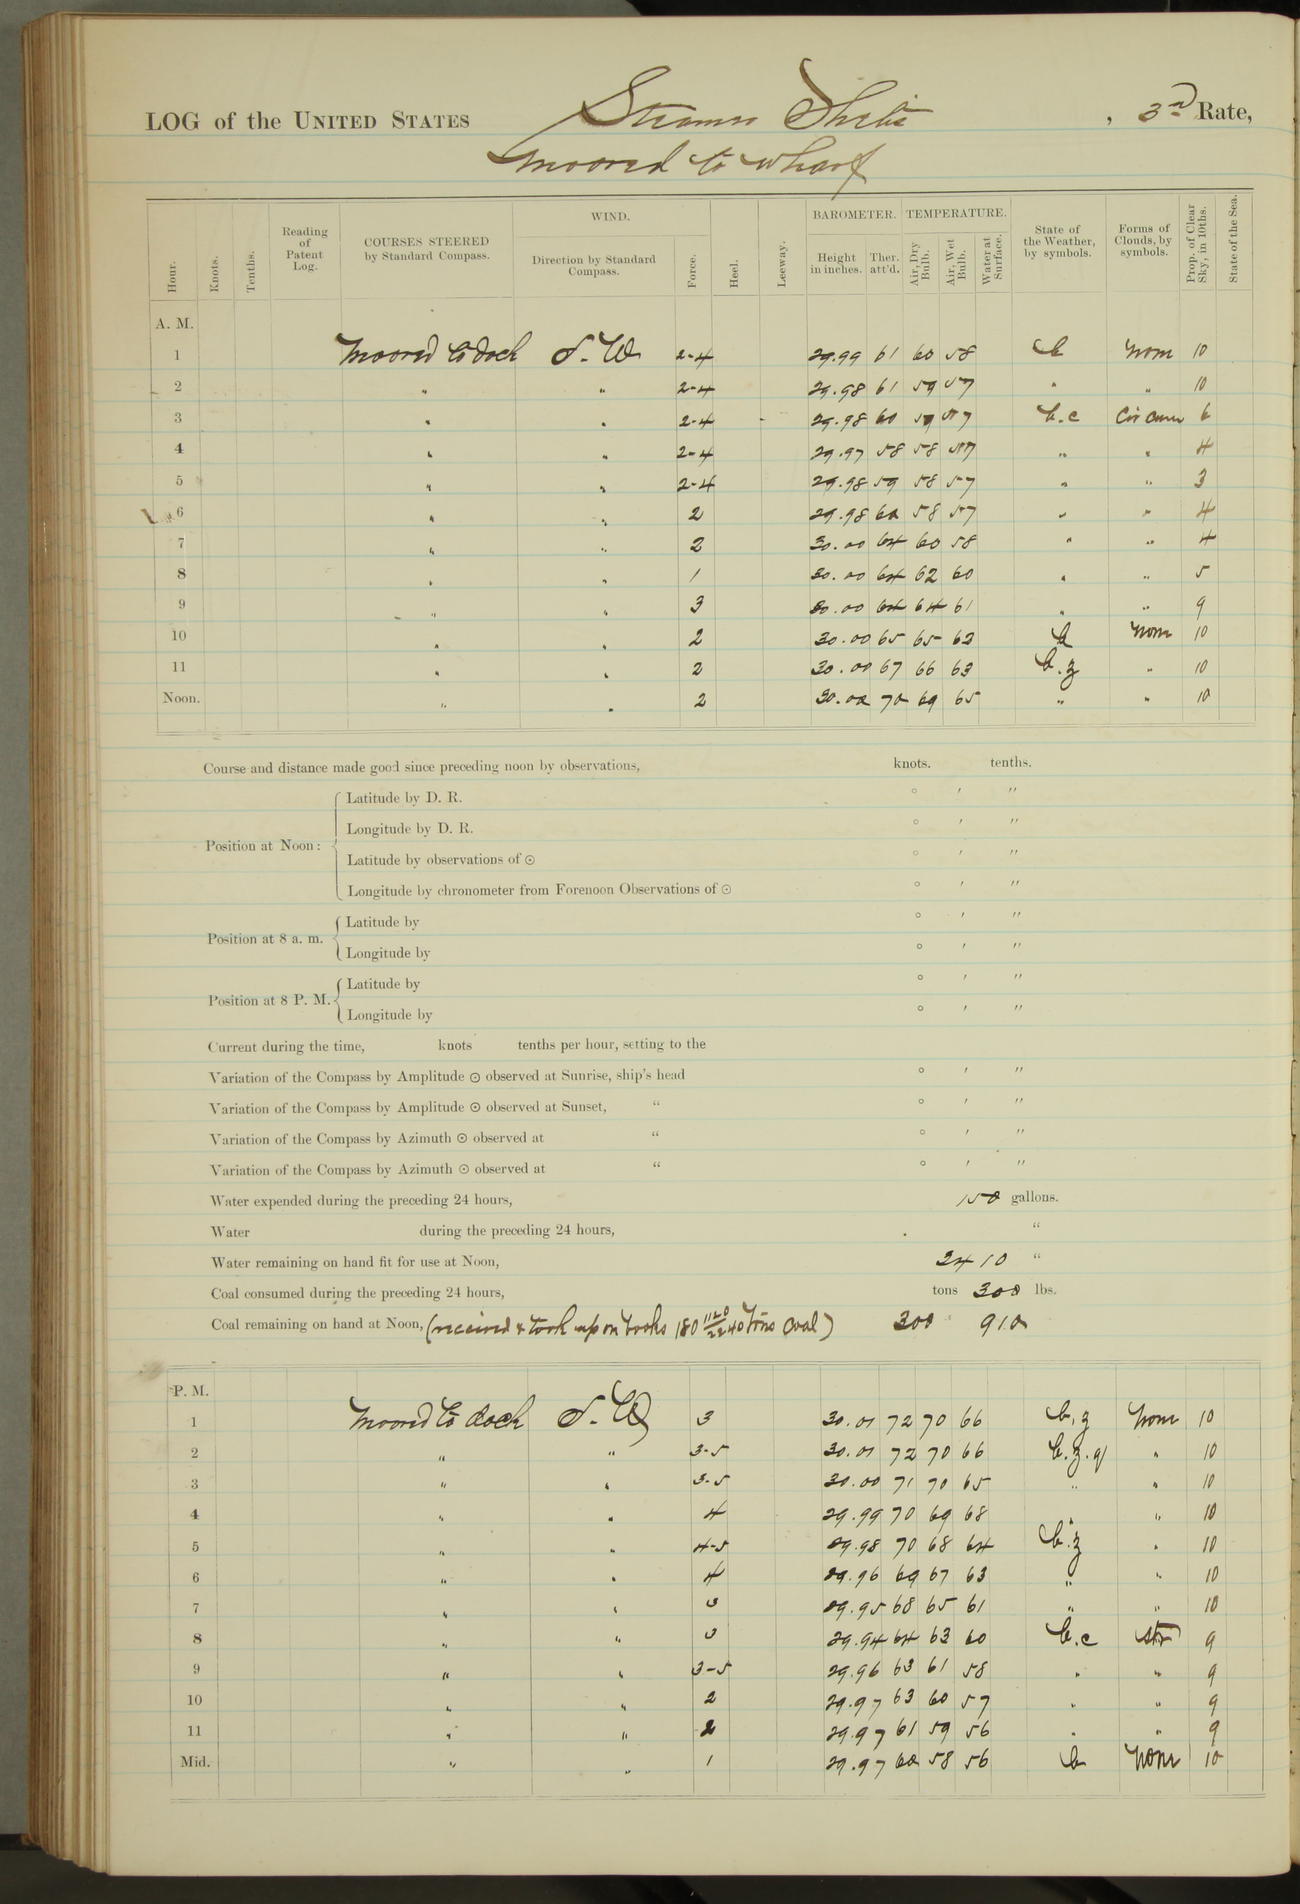 LOG of the UNITED STATES Steamer Thetis , 3rd Rate,
Moored to wharf
Hour. Knots. Tenths. Reading of Patent Log. COURSES STEERED by Standard Compass. WIND. Direction by Standard Compass. Force. Heel. Leeway. BAROMETER. Height in inches. Ther. att'd. TEMPERATURE. Air, Dry Bulb. Air, Wet Bulb. Water at Surface. State of the Weather, by symbols. Forms of Clouds, by symbols. Prop. of Clear Sky, in 10ths. State of the Sea.
A. M.
1 Moored to dock S. W 2-4 29.99 61 60 58 b None 10
2 " " 2-4 29.98 61 59 57 " " 10
3 " " 2-4 29.98 60 59 57 b.c Cir Cum 6
4 " " 2-4 29.97 58 58 57 " " 4
5 " " 2-4 29.98 59 58 57 " " 3
6 " " 2 29.98 60 58 57 " " 4
7 " " 2 30.00 64 60 58 " " 4
8 " " 1 30.00 64 62 60 " " 5
9 " " 3 30.00 64 64 61 " " 9
10 " " 2 30.00 65 65 62 b None 10
11 " " 2 30.00 67 66 63 b.z " 10
Noon. " " 2 30.02 70 69 65 " " 10
Course and distance made good since preceding noon by observations, knots. tenths.
Position at Noon:
Latitude by D. R. ° ′ ″
Longitude by D. R. ° ′ ″
Latitude by observations of ☉ ° ′ ″
Longitude by chronometer from Forenoon Observations of ☉ ° ′ ″
Position at 8 a. m.
Latitude by ° ′ ″
Longitude by ° ′ ″
Position at 8 P. M.
Latitude by ° ′ ″
Longitude by ° ′ ″
Current during the time, knots tenths per hour, setting to the
Variation of the Compass by Amplitude ☉ observed at Sunrise, ship's head ° ′ ″
Variation of the Compass by Amplitude ☉ observed at Sunset, " ° ′ ″
Variation of the Compass by Azimuth ☉ observed at " ° ′ ″
Variation of the Compass by Azimuth ☉ observed at " ° ′ ″
Water expended during the preceding 24 hours, 150 gallons.
Water during the preceding 24 hours, "
Water remaining on hand fit for use at Noon, 2410 "
Coal consumed during the preceding 24 hours, tons 300 lbs.
Coal remaining on hand at Noon, (received & took up on books 180 1120/2240 tons coal) 300 910
P. M.
1 Moored to dock S. W 3 30.01 72 70 66 b.z None 10
2 " " 3-5 30.01 72 70 66 b.z.q " 10
3 " " 3-5 30.00 71 70 65 " " 10
4 " " 4 29.99 70 69 68 " " 10
5 " " 4-5 29.98 70 68 64 b.z " 10
6 " " 4 29.96 69 67 63 " " 10
7 " " 3 29.95 68 65 61 " " 10
8 " " 3 29.94 64 63 60 b.c str 9
9 " " 3-5 29.96 63 61 58 " " 9
10 " " 2 29.97 63 60 57 " " 9
11 " " 2 29.97 61 59 56 " " 9
Mid. " " 1 29.97 60 58 56 b None 10